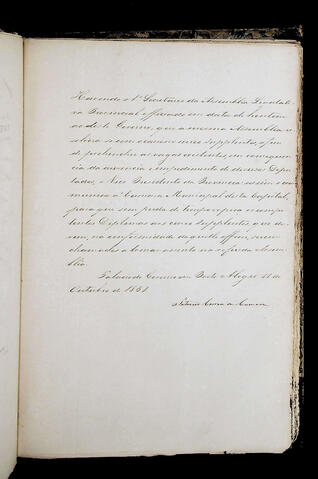 Havendo o 1º Secretario da Assembléa Legislati-
va Provincial officiado em data de hontem
deste Governo, que a mesma Assembléa re-
solvera se chamassem mais supplentes, a fim
de preencher as vagas existentes em consequen-
cia da ausencia e impedimento de diversos Depu-
tados, o Vice Presidente da Provincia assim o com-
munica á Camara Municipal desta Capital,
para que sem perda de tempo expeça os compe-
tentes Diplomas aos supplentes que de-
vem, na conformidade daquelle officio, ser
chamados a tomar assento na referida Assem-
bléa.
Palacio do Governo em Porto Alegre 11 de
Outubro de 1851.